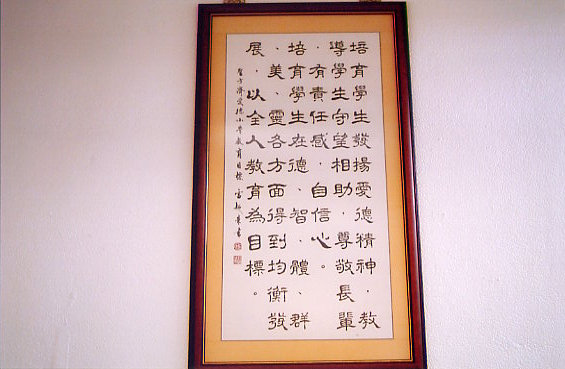 培育學生發揚愛德精神，教
導學生守望相助，尊敬長輩
，有責任感，自信心。
培育學生在德、智、體、群
、美、靈各方面得到均衡發
展，以全人教育為目標。
聖方濟愛德小學教育目標